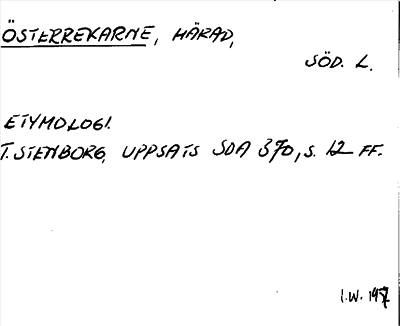 ÖSTERREKARNE, HÄRAD,
SÖD. L.
ETYMOLOGI.
T. STENBORG, UPPSATS SOA 370, S. 12 FF.
I.W. 1957